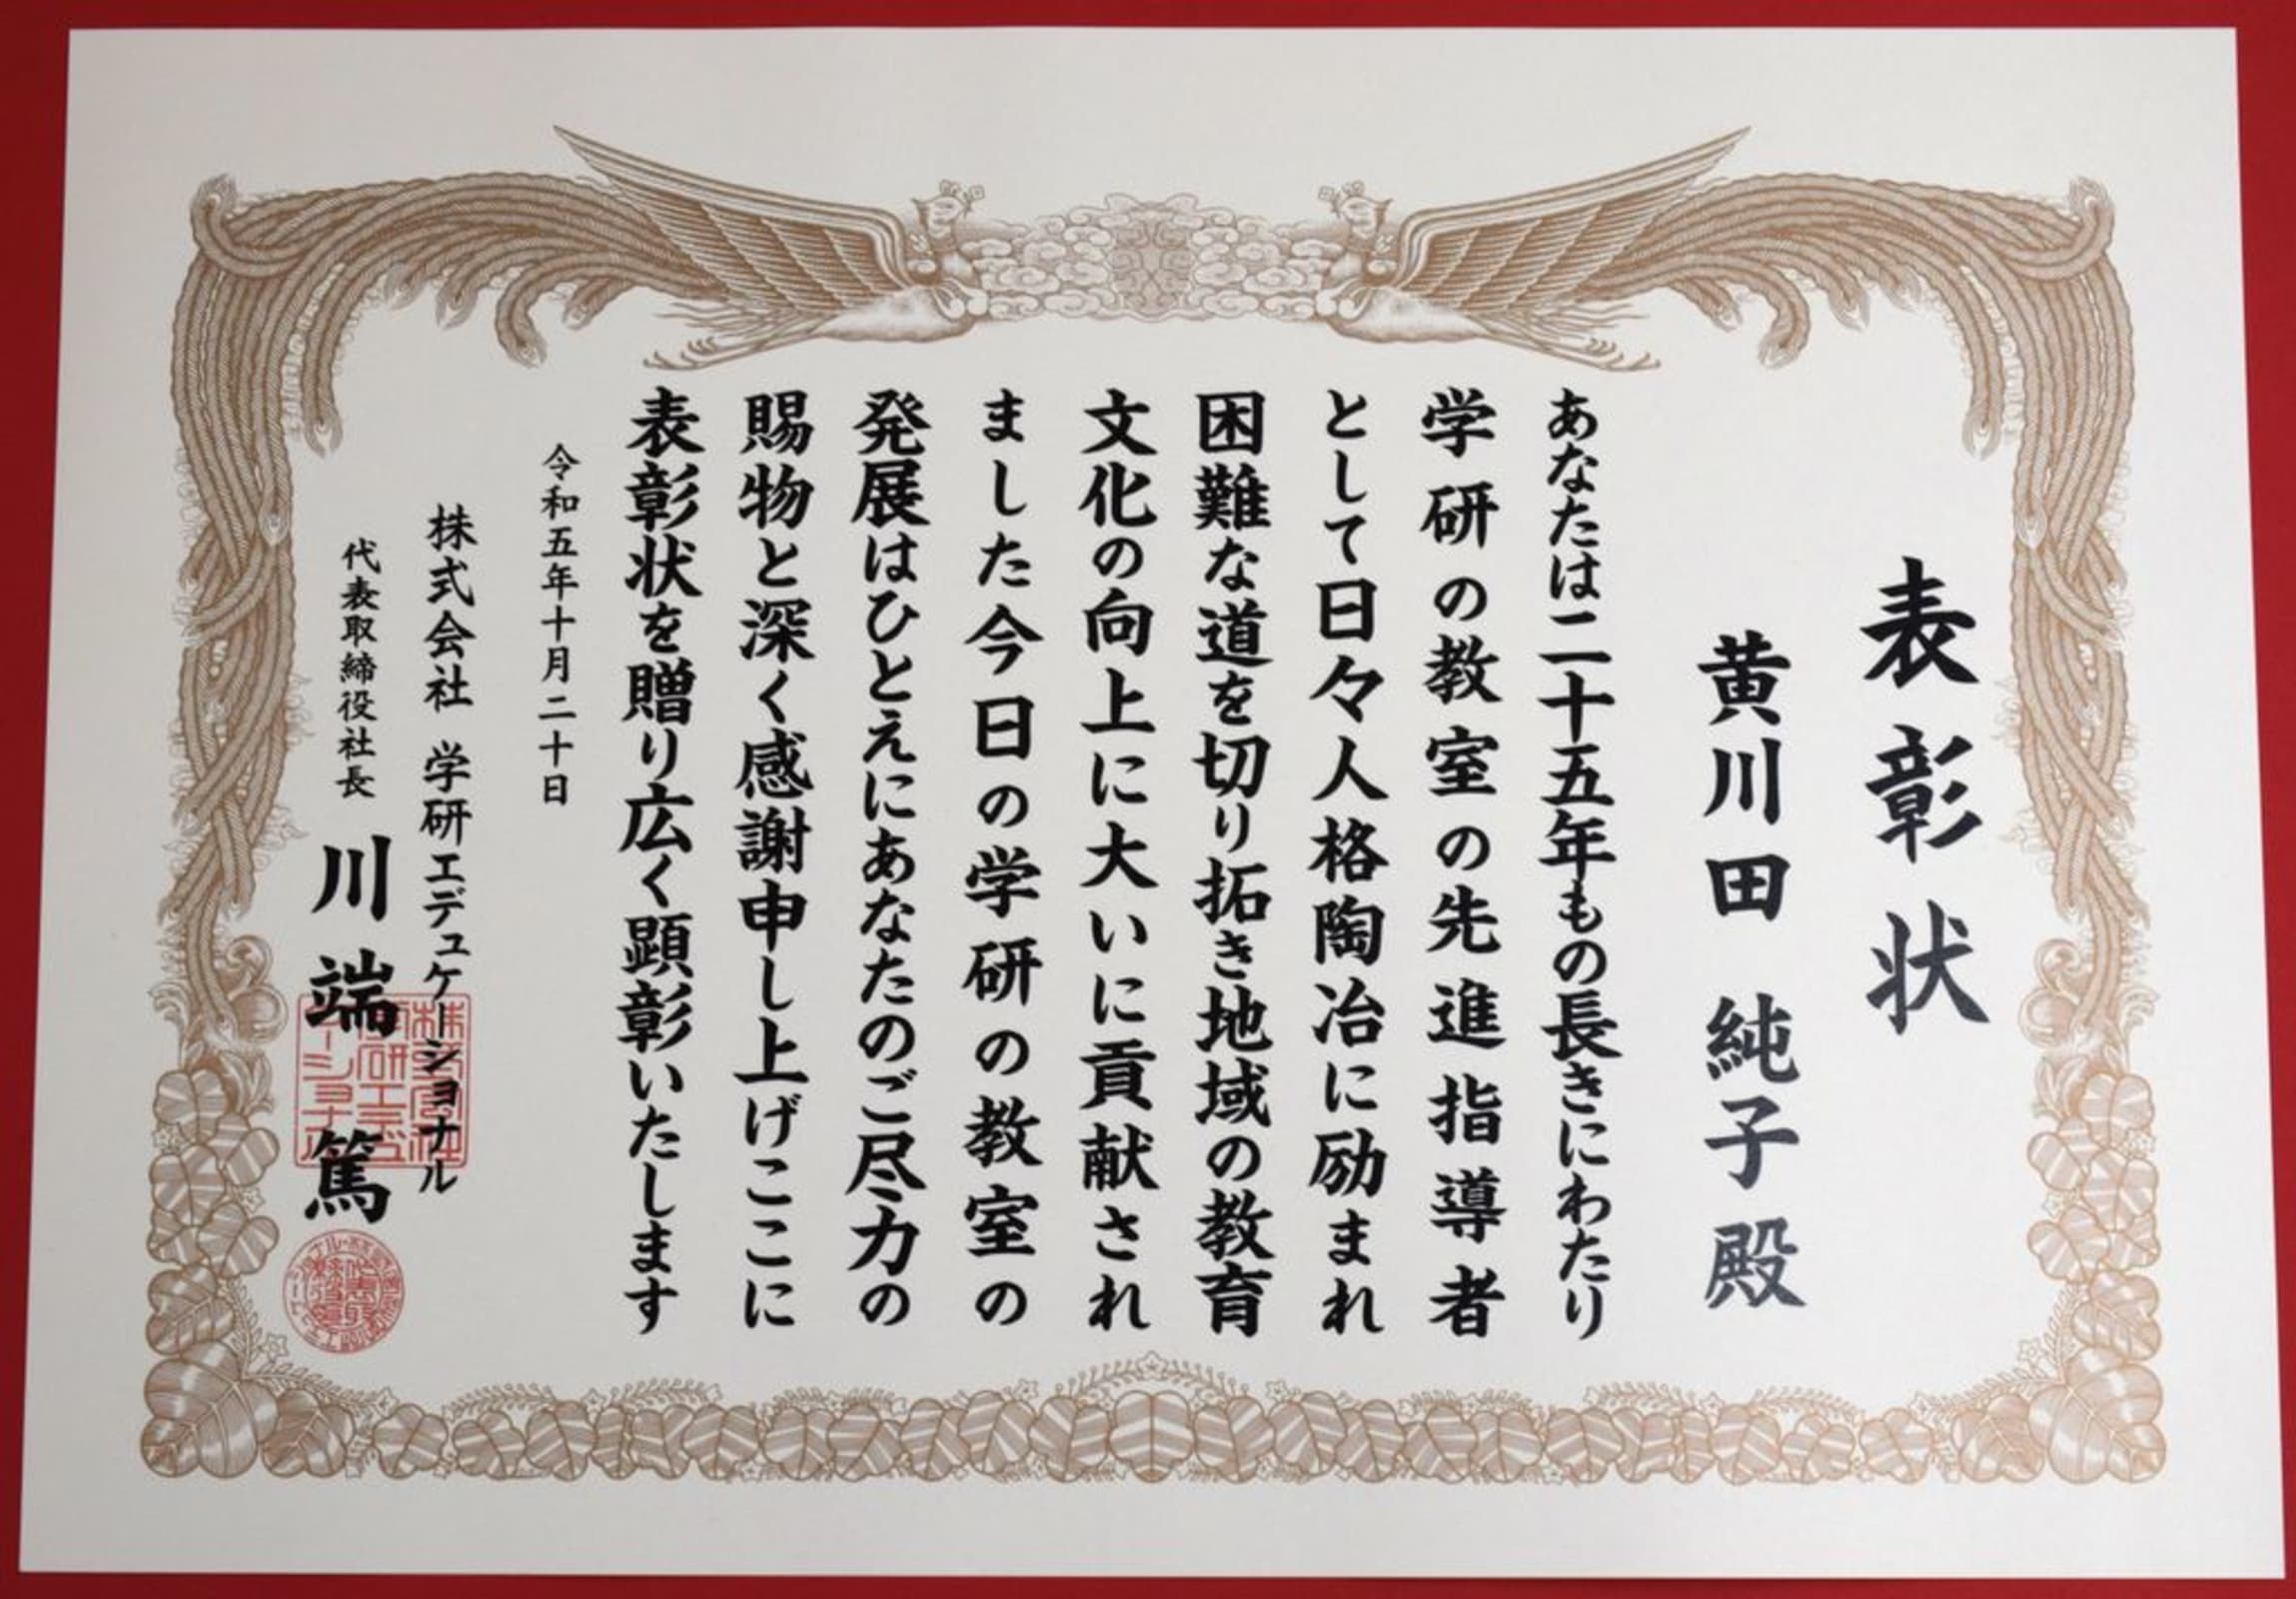 表彰状
黄川田 純子 殿
あなたは二十五年もの長きにわたり
学研の教室の先進指導者
として日々人格陶冶に励まれ
困難な道を切り拓き地域の教育
文化の向上に大いに貢献され
ました今日の学研の教室の
発展はひとえにあなたのご尽力の
賜物と深く感謝申し上げここに
表彰状を贈り広く顕彰いたします
令和五年十月二十日
株式会社 学研エデュケーショナル
代表取締役社長 川端 篤